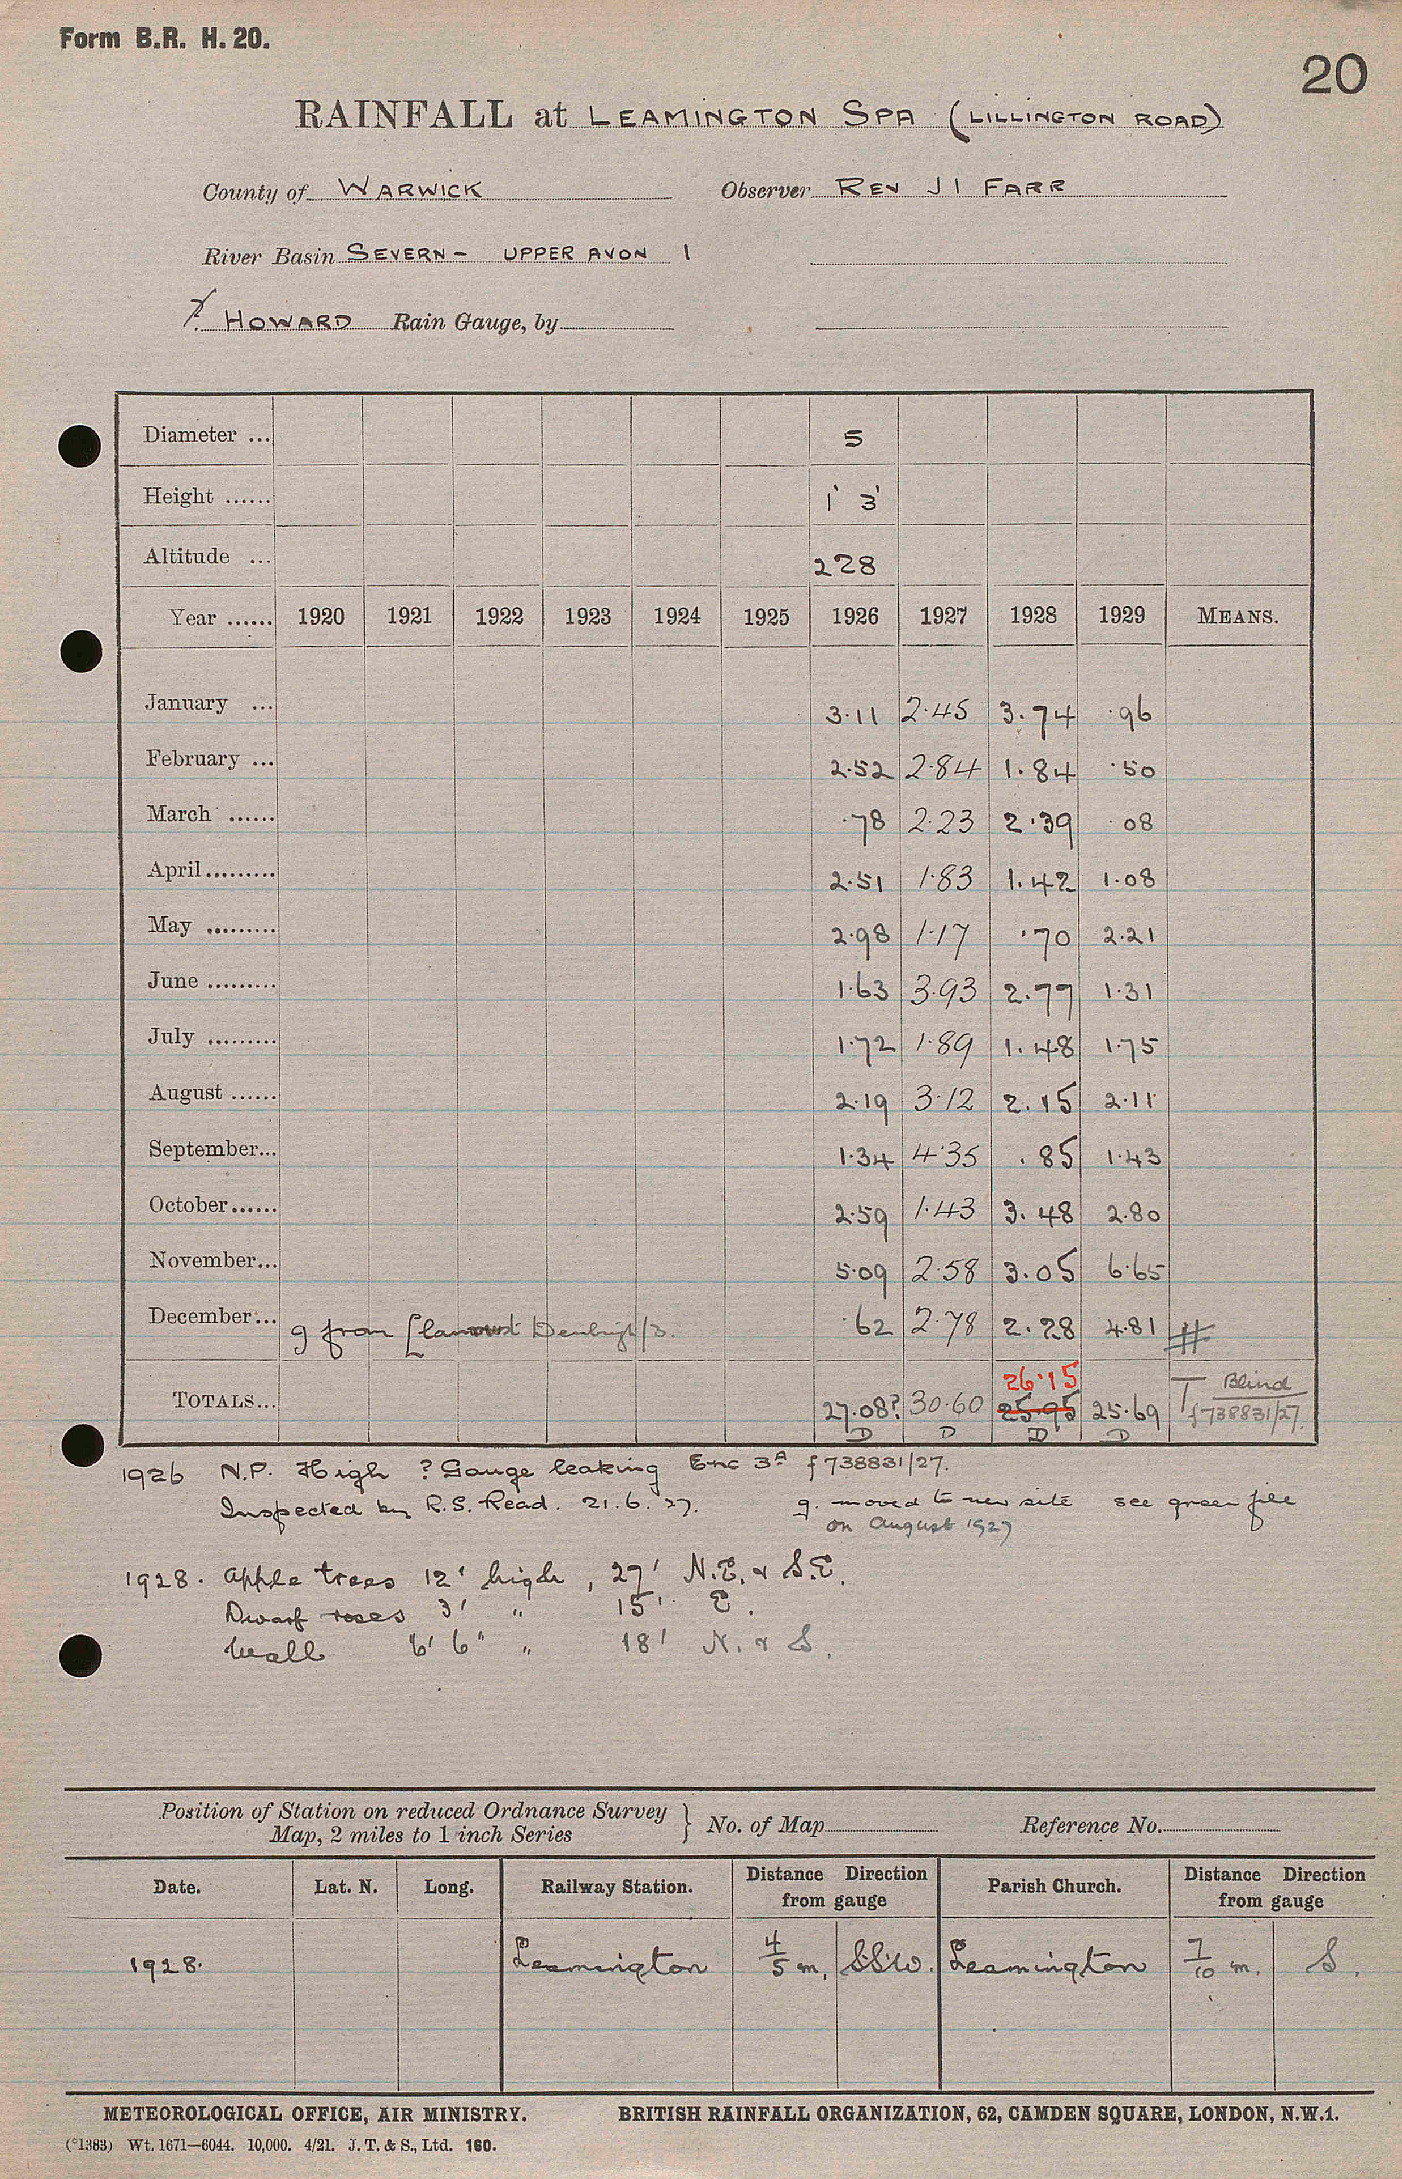 Form B.R. H. 20.
20
RAINFALL at LEAMINGTON SPA (LILLINGTON ROAD)
County of WARWICK Observer REV J I FARR
River Basin SEVERN - UPPER AVON 1
HOWARD Rain Gauge, by
Diameter ... 5
Height ...... 1' 3"
Altitude ... 228
Year ...... 1920 1921 1922 1923 1924 1925 1926 1927 1928 1929 MEANS.
January ... 3·11 2·45 3·74 ·96
February ... 2·52 2·84 1·84 ·50
March ...... ·78 2·23 2·39 ·08
April ......... 2·51 1·83 1·42 1·08
May ......... 2·98 1·17 ·70 2·21
June ......... 1·63 3·93 2·77 1·31
July ......... 1·72 1·89 1·48 1·75
August ...... 2·19 3·12 2·15 2·11
September... 1·34 4·35 ·85 1·43
October...... 2·59 1·43 3·48 2·80
November... 5·09 2·58 3·05 6·65
December... g from Denbigh/3. ·62 2·78 2·28 4·81 #
26·15
TOTALS... 27·08? 30·60 25·95 25·69 T Blind
f738831/27.
D D D D
1926 N.P. High ? Gauge leaking Enc 3A f738831/27.
Inspected by R.S. Read. 21.6.27. g. moved to new site see green file
on August 1927
1928. Apple trees 12' high, 27' N.E. & S.E.
Dwarf roses 3' " 15' E.
Wall 6' 6" " 18' N. & S.
Position of Station on reduced Ordnance Survey
Map, 2 miles to 1 inch Series } No. of Map Reference No.
Date. Lat. N. Long. Railway Station. Distance Direction from gauge Parish Church. Distance Direction from gauge
1928. Leamington 4/5 m. SSW. Leamington 7/10 m. S.
METEOROLOGICAL OFFICE, AIR MINISTRY. BRITISH RAINFALL ORGANIZATION, 62, CAMDEN SQUARE, LONDON, N.W.1.
(°1383) Wt. 1671—6044. 10,000. 4/21. J. T. & S., Ltd. 160.